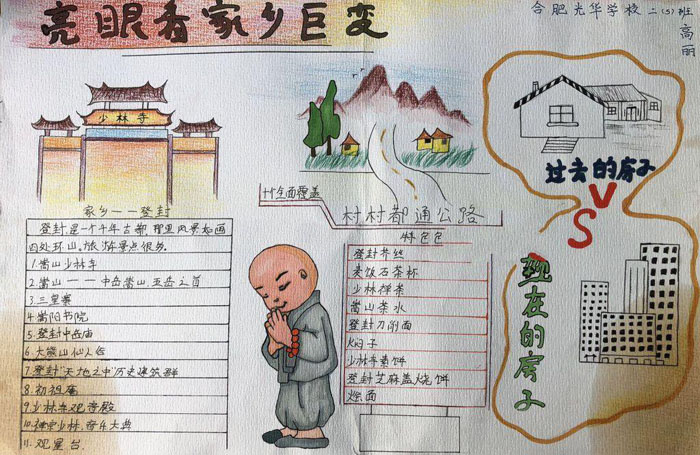 亮眼看家乡巨变
合肥光华学校 二(5)班
高丽
少林寺
家乡——登封
登封是一个千年古都,那里风景如画
四处环山,旅游景点很多。
1.嵩山少林寺
2.嵩山——中岳嵩山,五岳之首
3.三皇寨
4.嵩阳书院
5.登封中岳庙
6.大熊山仙人谷
7.登封"天地之中"历史建筑群
8.初祖庵
9.少林寺观音殿
10.禅宗少林·音乐大典
11.观星台
全面覆盖
村村都通公路
登封芥丝
麦饭石茶杯
少林禅茶
嵩山茶水
登封刀削面
焖子
少林寺素饼
登封芝麻盖烧饼
烩面
过去的房子
VS
现在的房子